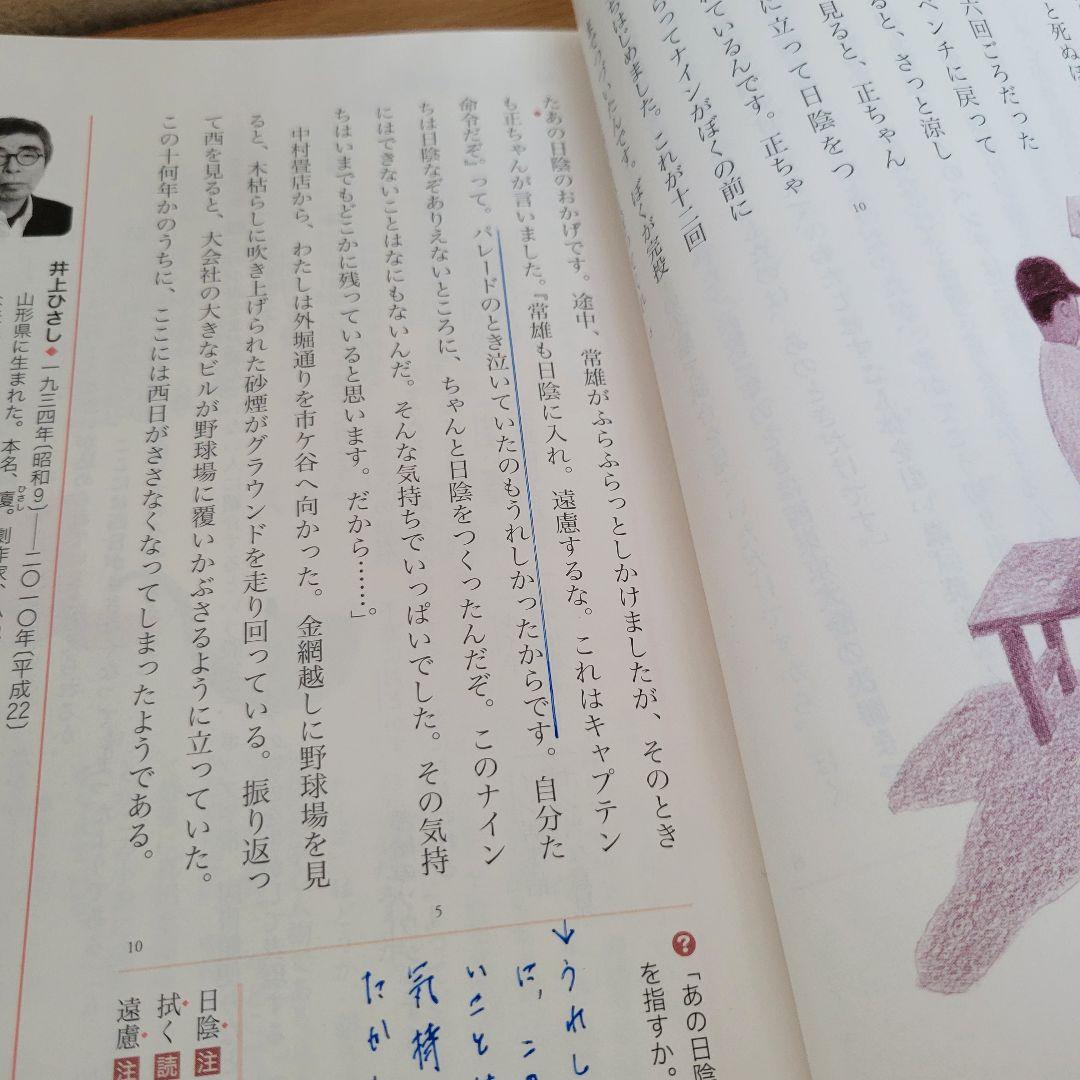 と死ぬほ
六回ごろだった
ベンチに戻って
ると、さっと涼し
見ると、正ちゃん
に立って日陰をつ
れているんです。正ちゃ
らってナインがぼくの前に
ちはじめました。これが十二回
10
たあの日陰のおかげです。途中、常雄がふらふらっとしかけましたが、そのとき
も正ちゃんが言いました。『常雄も日陰に入れ。遠慮するな。これはキャプテン
命令だぞ。』って。パレードのとき泣いていたのもうれしかったからです。自分た
ちは日陰なぞありえないところに、ちゃんと日陰をつくったんだぞ。このナイン
にはできないことはなにもないんだ。そんな気持ちでいっぱいでした。その気持
ちはいまでもどこかに残っていると思います。だから……」。
中村畳店から、わたしは外堀通りを市ケ谷へ向かった。金網越しに野球場を見
ると、木枯らしに吹き上げられた砂煙がグラウンドを走り回っている。振り返っ
て西を見ると、大会社の大きなビルが野球場に覆いかぶさるように立っていた。
この十何年かのうちに、ここには西日がささなくなってしまったようである。
5
10
井上ひさし◆一九三四年〔昭和9〕――二〇一〇年〔平成22〕
山形県に生まれた。本名、廈。劇作家、
ひさし
?「あの日陰
を指すか。
↓うれし
に、こ
いこと
気持
たか
日陰 注
拭く 読
遠慮 注